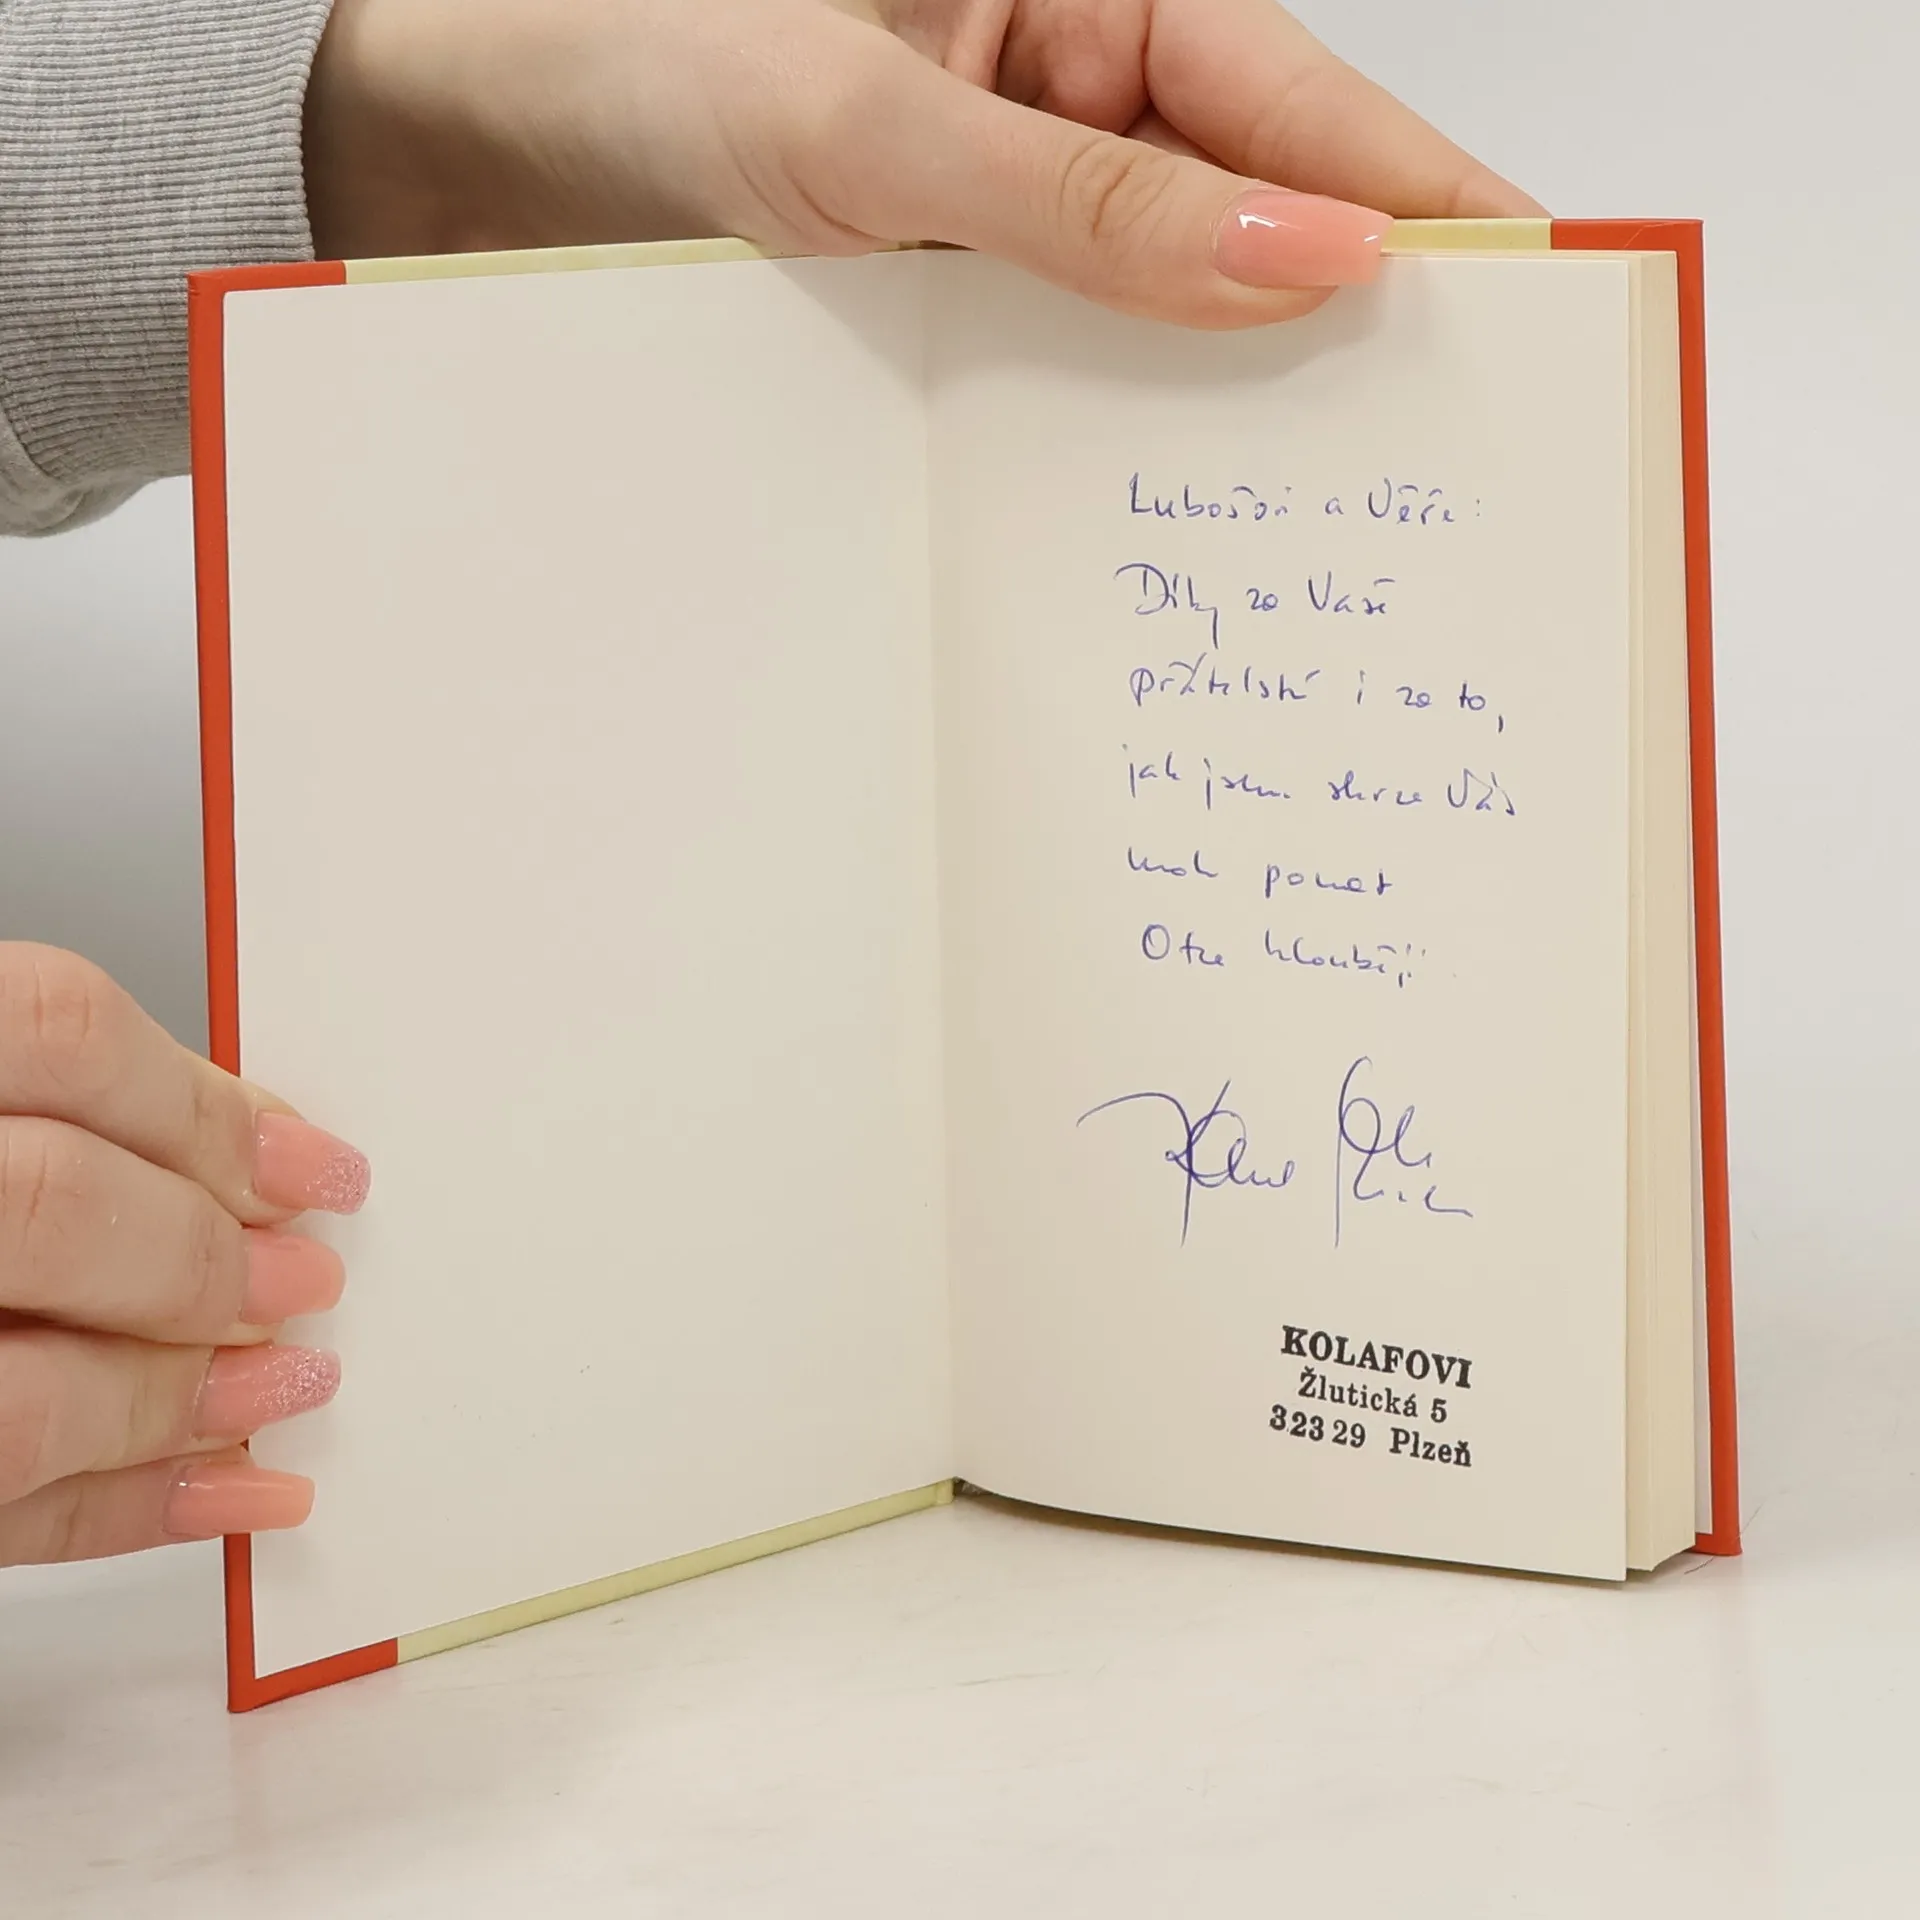 Lubošovi a Věře:
Díky za Vaše
přátelství i za to,
jak jsem skrze Vás
mohl poznat
Otce hlouběji
KOLAFOVI
Žlutická 5
323 29 Plzeň